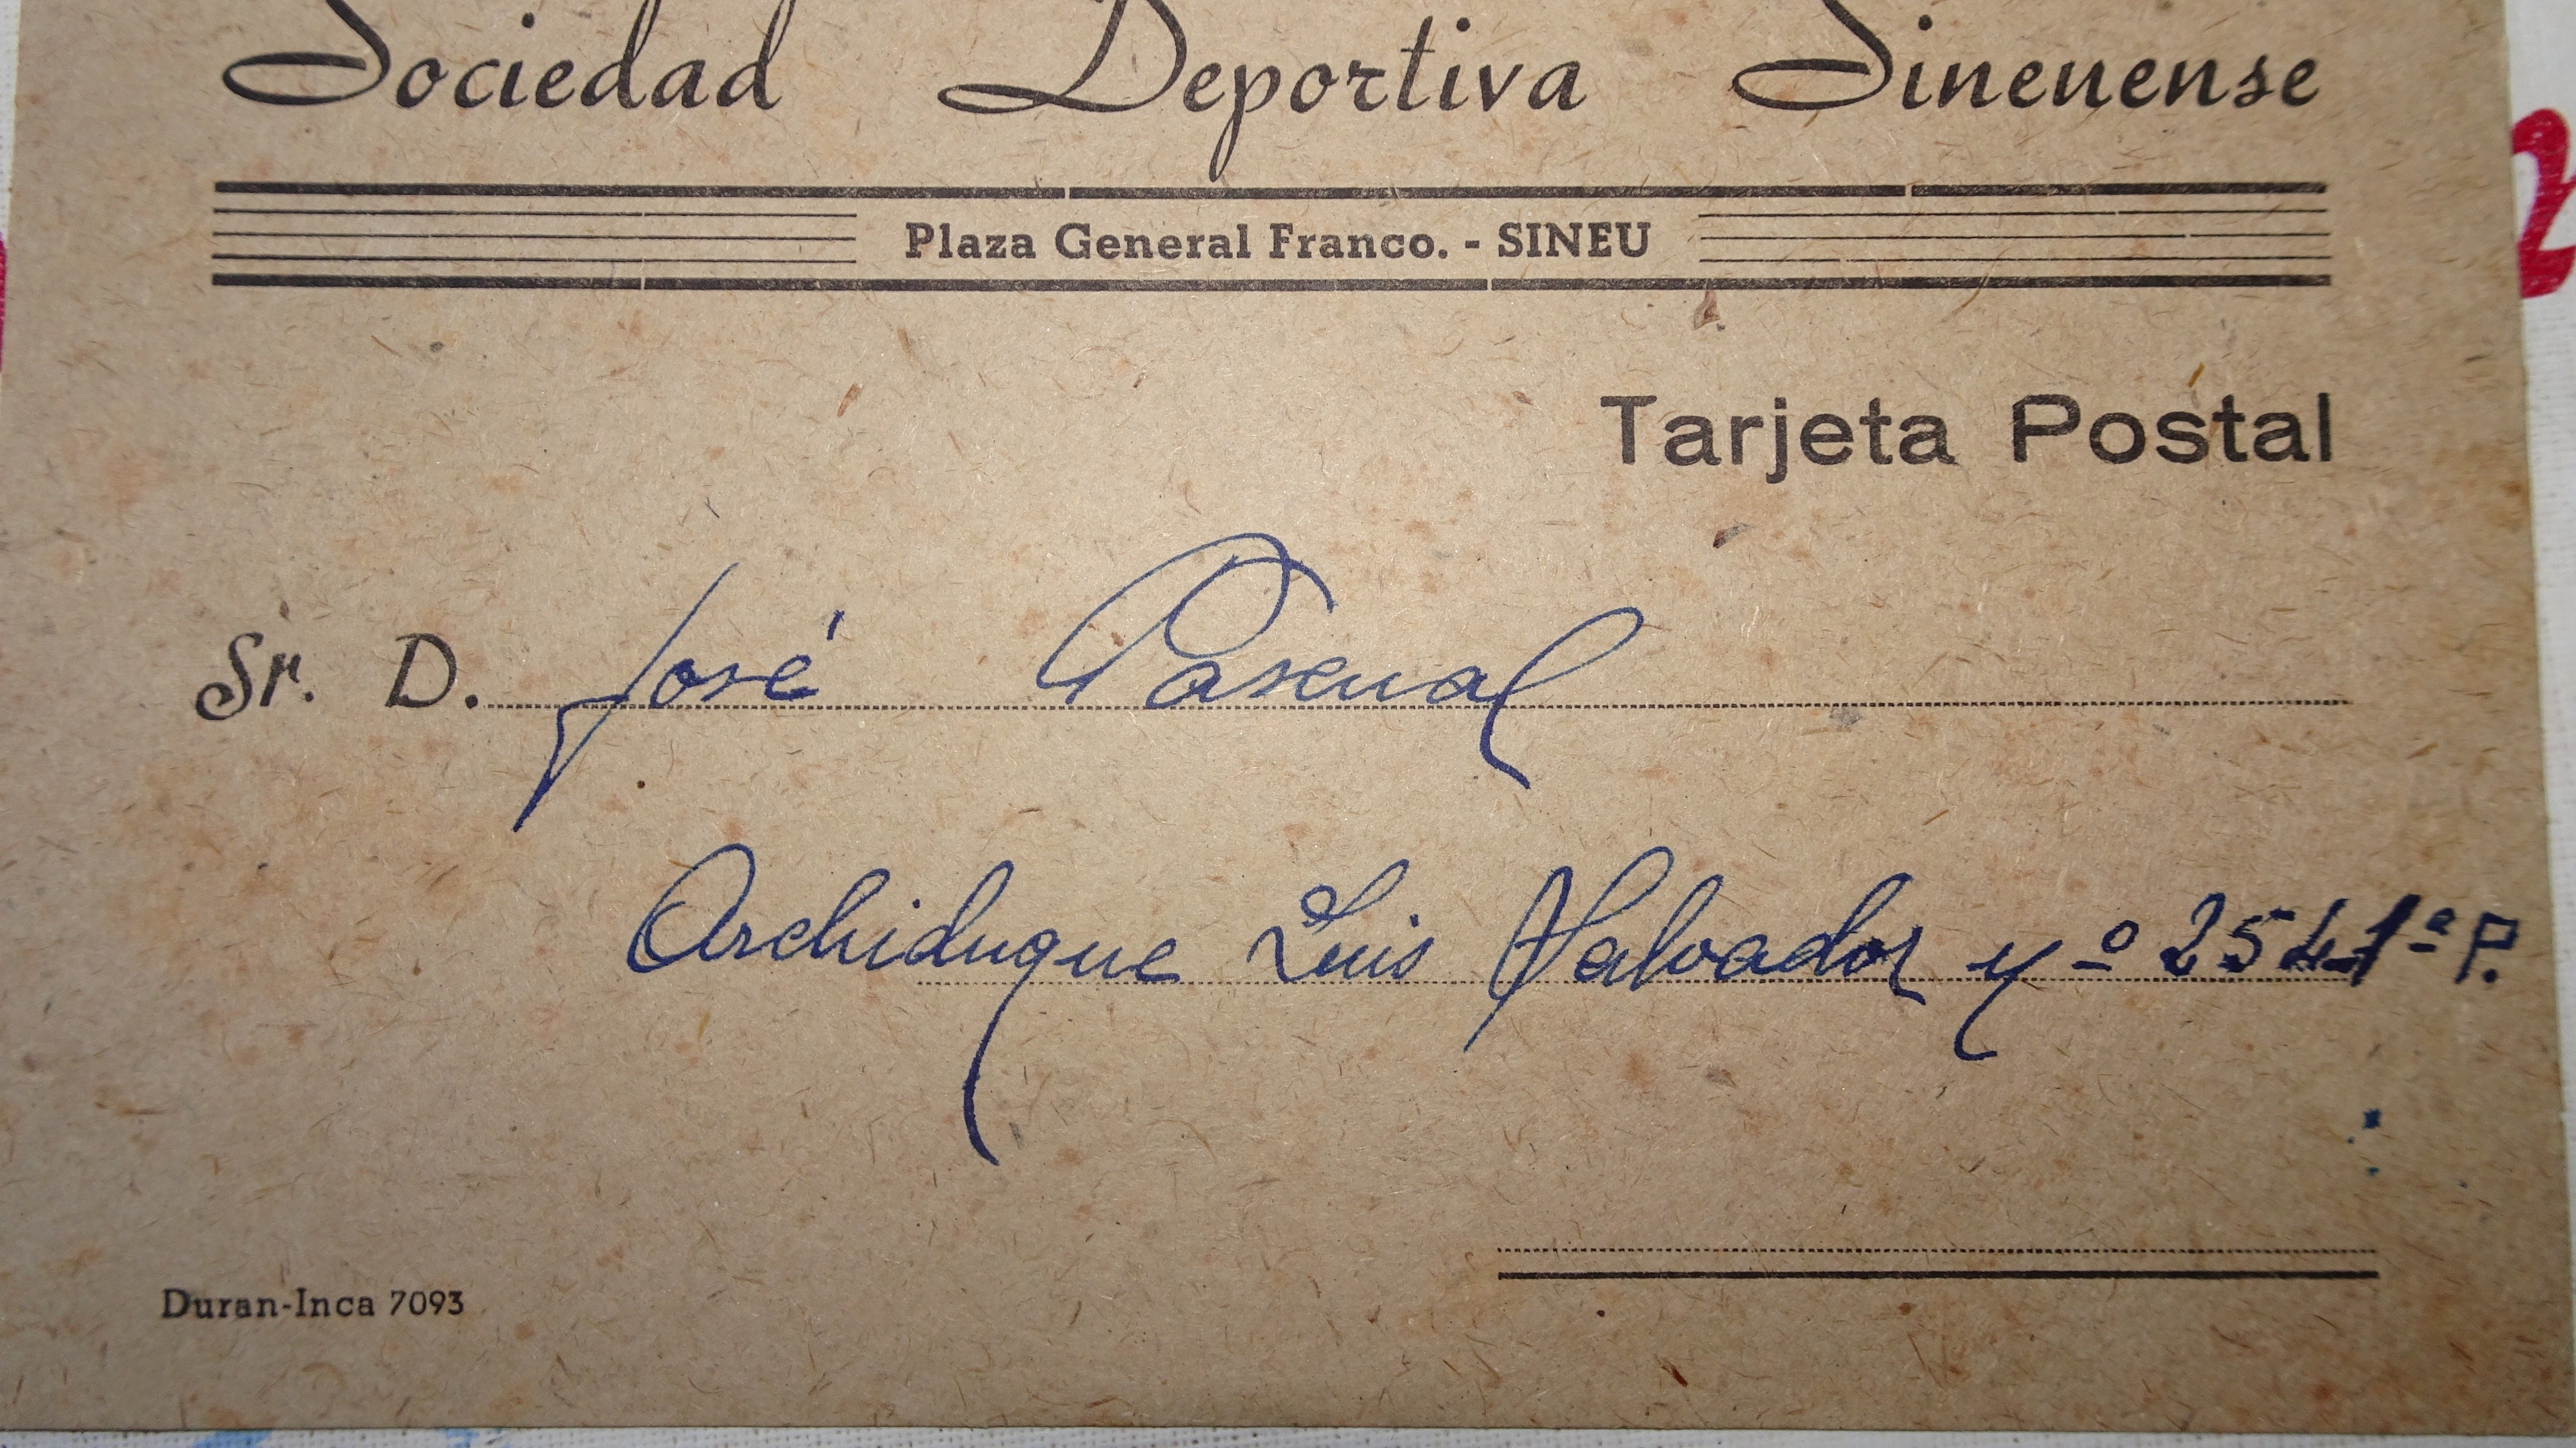 Sociedad Deportiva Sineuense
Plaza General Franco. - SINEU
Tarjeta Postal
Sr. D. José Pascual
Archiduque Luis Salvador nº 254-1º P.
Duran-Inca 7093